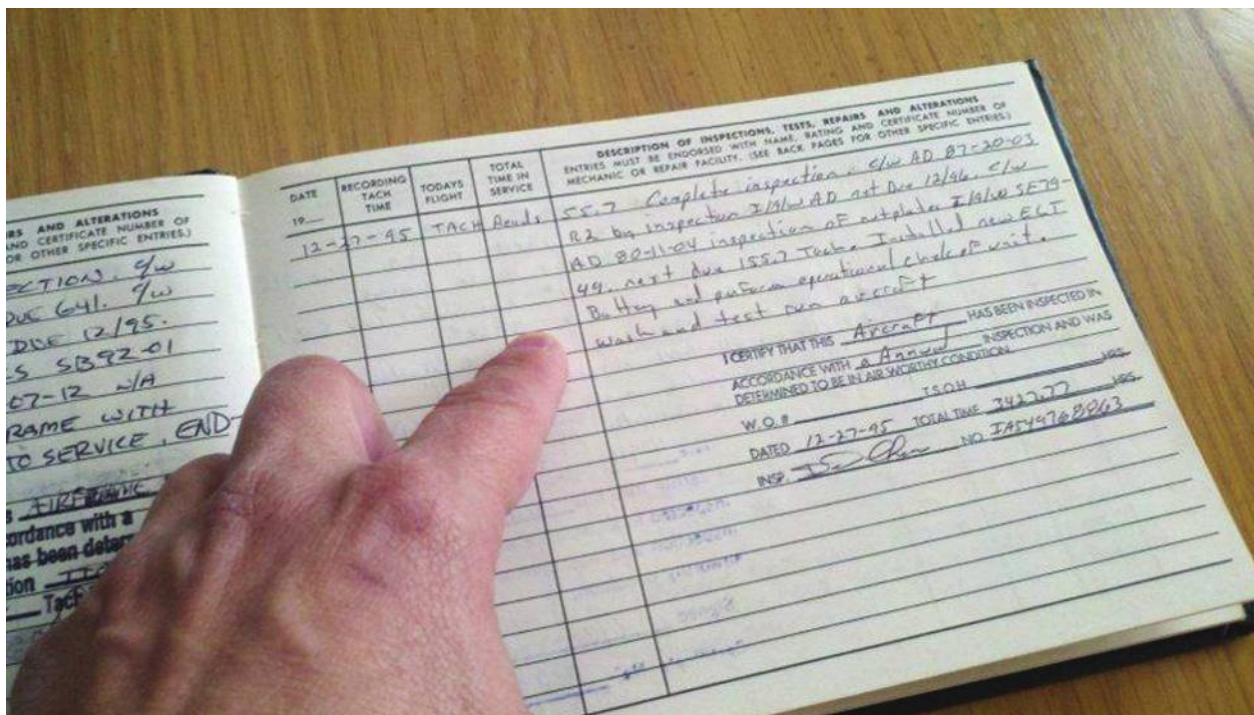 RS AND ALTERATIONS
AND CERTIFICATE NUMBER OF
OR OTHER SPECIFIC ENTRIES.)
ECTION. c/w
DUE 641. c/w
DUE 12/95.
SB92-01
07-12 N/A
RAME WITH
TO SERVICE. END
AIRFRAME
ordance with a
has been deter
tion
Tach
DATE
19__
RECORDING
TACH
TIME
TODAYS
FLIGHT
TOTAL
TIME IN
SERVICE
DESCRIPTION OF INSPECTIONS, TESTS, REPAIRS AND ALTERATIONS
ENTRIES MUST BE ENDORSED WITH NAME, RATING AND CERTIFICATE NUMBER OF
MECHANIC OR REPAIR FACILITY. (SEE BACK PAGES FOR OTHER SPECIFIC ENTRIES.)
12-27-95 TACH Reads 55.7 Complete inspection. c/w AD 87-20-03
R2 by inspection I/A/W AD nxt Due 12/96. c/w
AD 80-11-04 inspection of nutplates I/A/W SE79-
49. next due 155.7 Tach. Installed new ELT
Battery and perform operational check of unit.
Wash and test run aircraft
I CERTIFY THAT THIS Aircraft HAS BEEN INSPECTED IN
ACCORDANCE WITH a Annual INSPECTION AND WAS
DETERMINED TO BE IN AIR WORTHY CONDITION.
W.O.# T.S.O.H. HRS.
DATED 12-27-95 TOTAL TIME 3427.77 HRS.
INSP. NO. IA549768863